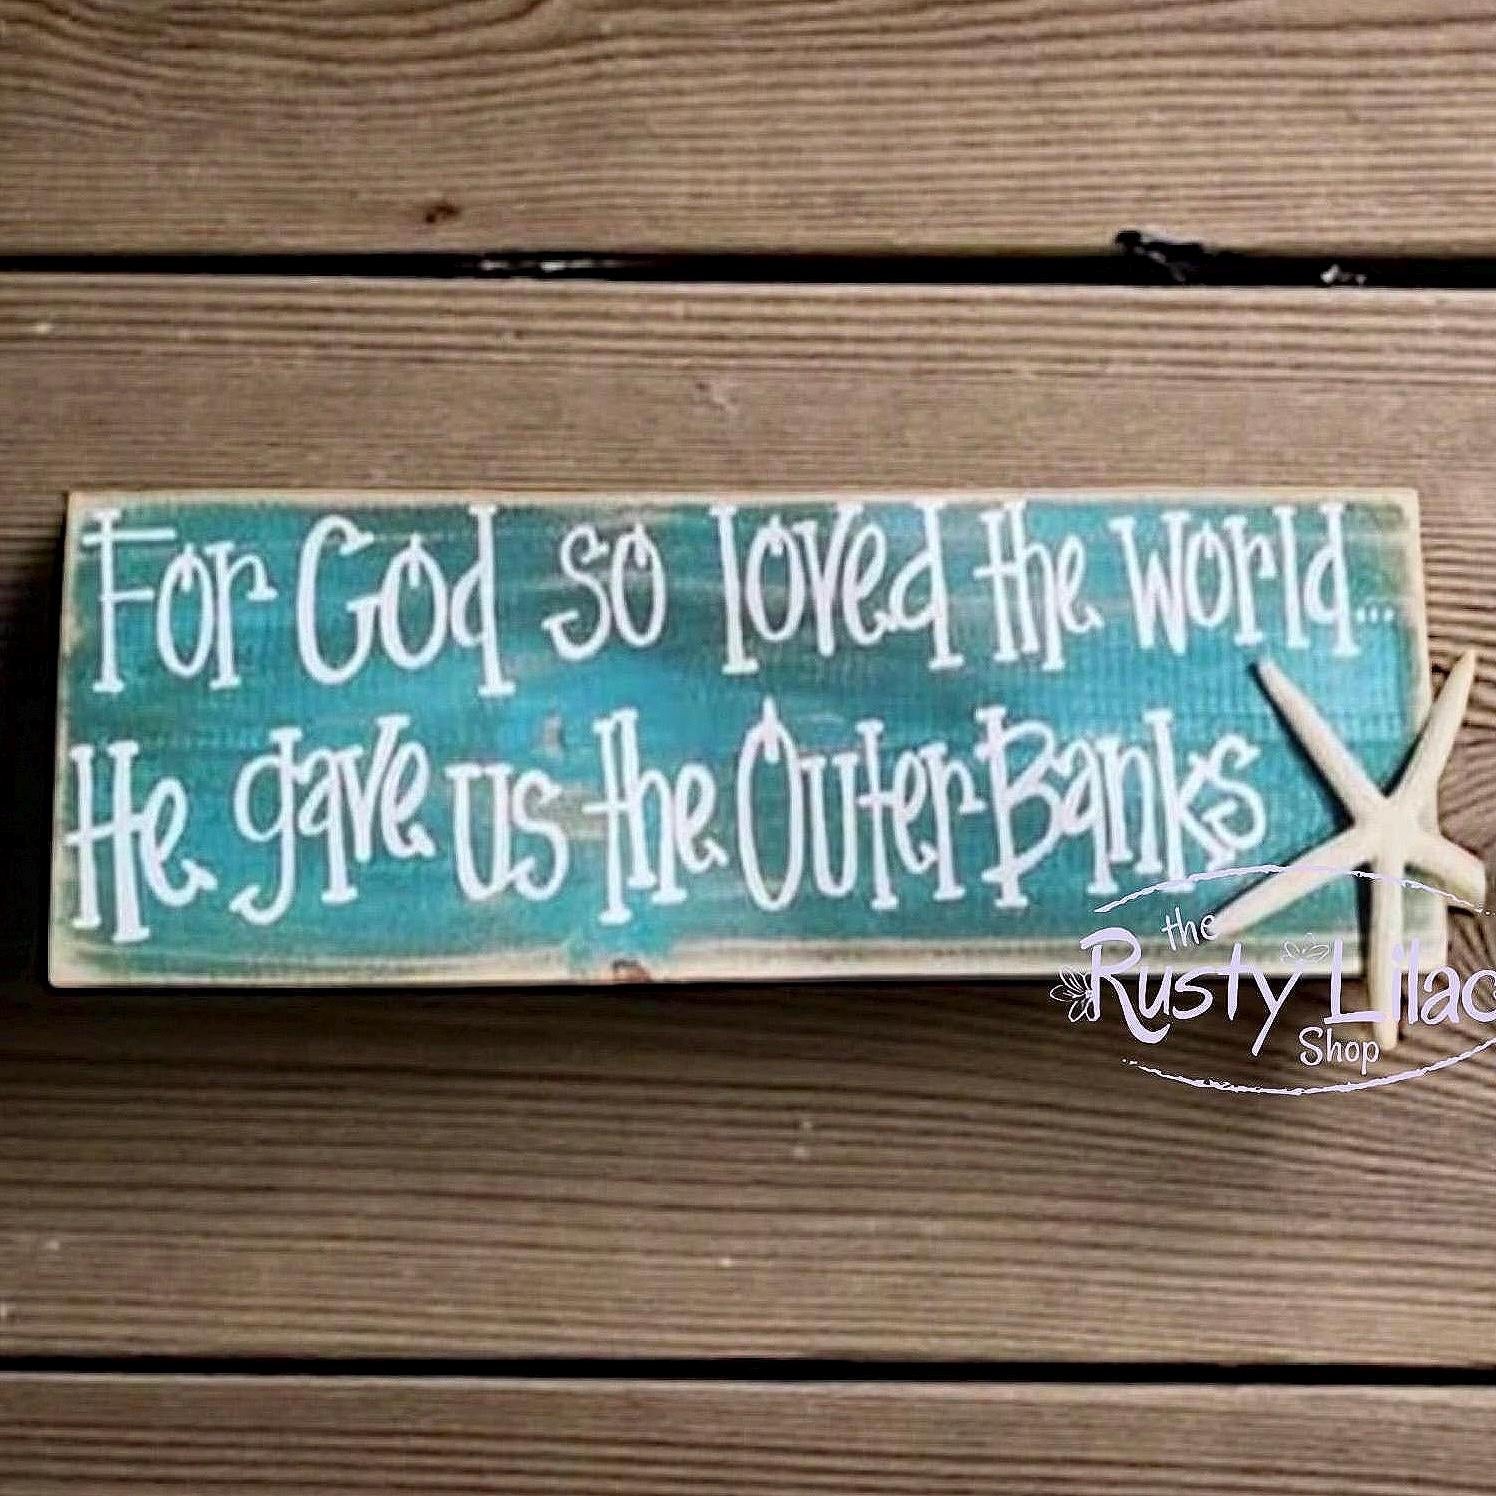 For God so loved the world...
He gave us the Outer Banks
the
Rusty Lilac
Shop